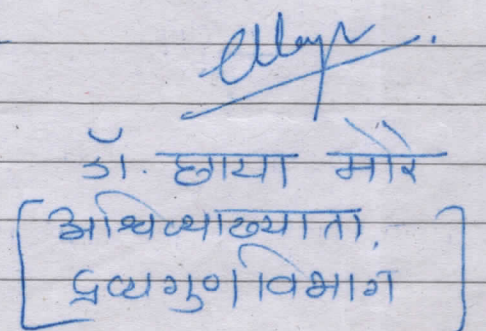 डॉ. छाया मोरे
[अधिव्याख्याता,
द्रव्यगुण विभाग]